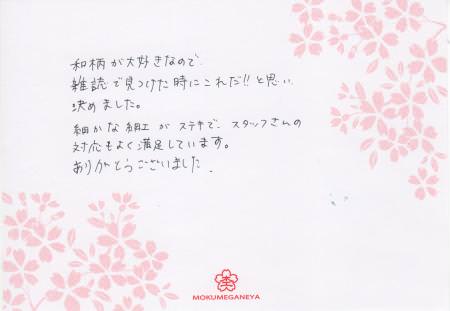 和柄が大好きなので
雑誌で見つけた時にこれだ!!と思い
決めました。
細かな細工がステキで、スタッフさんの
対応もよく満足しています。
ありがとうございました
MOKUMEGANEYA